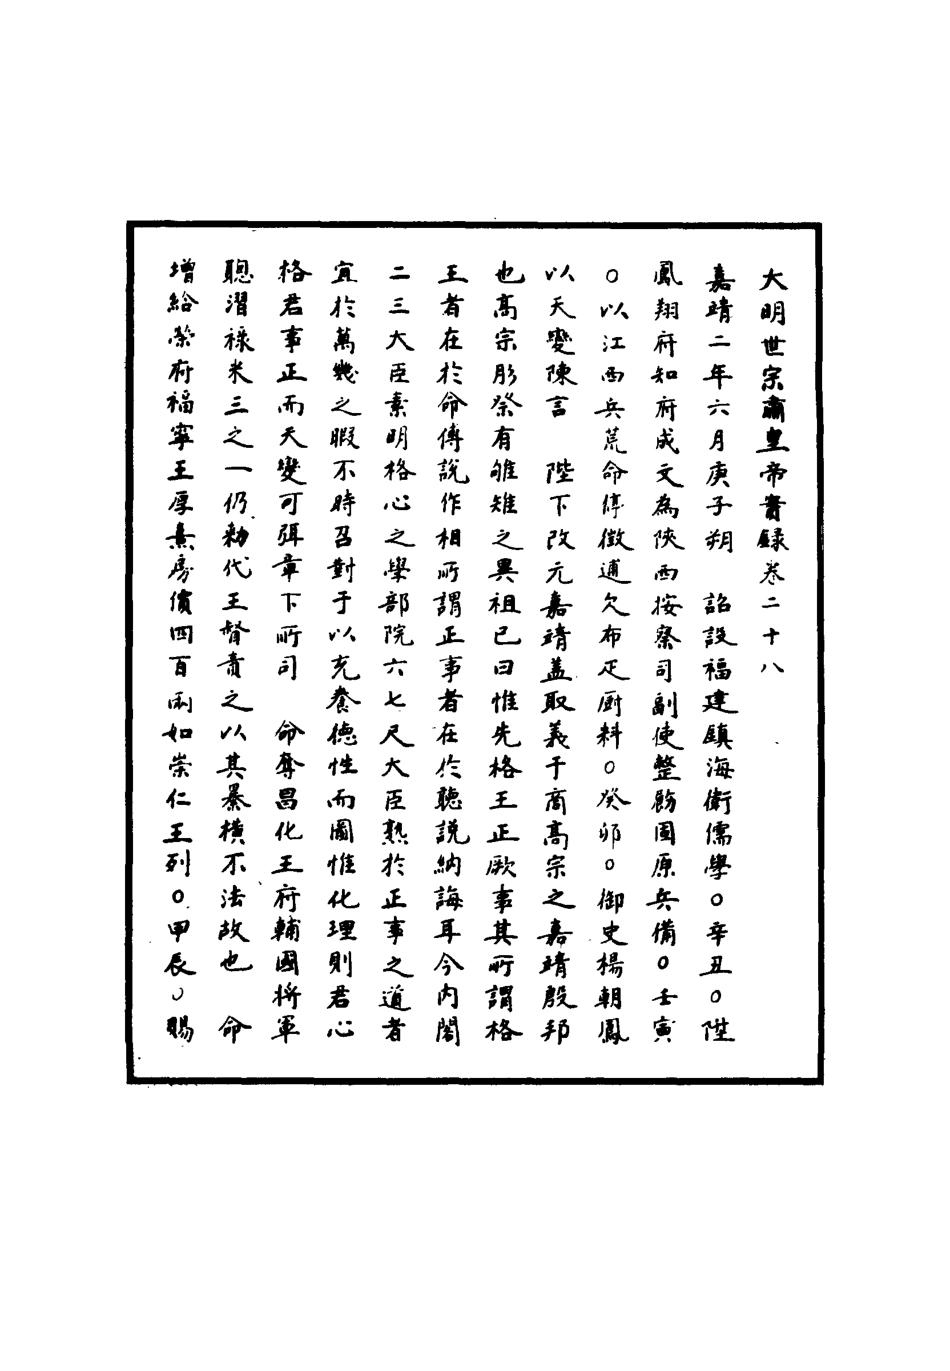 大明世宗肅皇帝實録卷二十八
嘉靖二年六月庚子朔　詔設福建鎮海衛儒學○辛丑○陞
鳳翔府知府成文為陜西按察司副使整飭固原兵備○壬寅
○以江西兵荒命停徵逋欠布疋厨料○癸卯○御史楊朝鳳
以天變陳言　陛下改元嘉靖盖取義于商高宗之嘉靖殷邦
也高宗肜祭有雊雉之異祖已曰惟先格王正厥事其所謂格
王者在於命傅說作相所謂正事者在於聽説納誨耳今内閣
二三大臣素明格心之學部院六七尺大臣熟於正事之道者
宜於萬幾之暇不時召對于以充養德性而圖惟化理則君心
格君事正而天變可弭章下所司　命奪昌化王府輔國將軍
聰㵫祿米三之一仍勑代王督責之以其暴横不法故也　命
增給榮府福寧王厚熹房價四百兩如崇仁王列○甲辰○賜